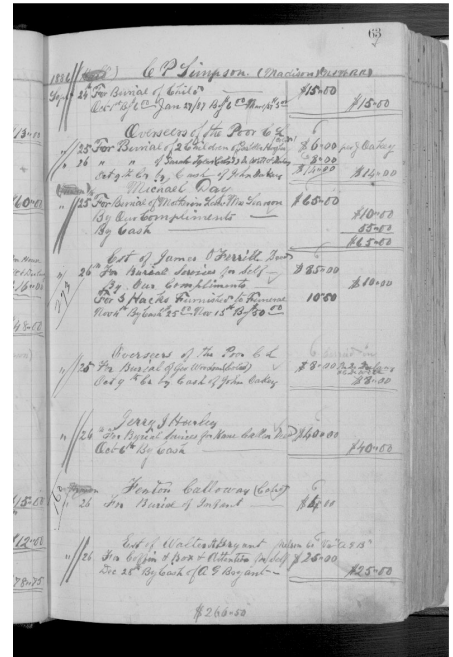 63
1886 C P Simpson. (Madison
Sept 24 For Burial of Child $15-00
Oct 1st By $6.00 Jan 27/87 By $6.00 $15-00
Overseers of the Poor C L
25 For Burial of 2 Children of $6-00 per J Oakey
26 " " of Sarah $8-00
Oct 9th Cr by Cash of John Oakey $14-00 $14-00
Michael Day
25 For Burial of Mother in Law Mrs $65-00
By Our Compliments $10-00
By Cash 55-00
$65-00
Est of James O'Ferrell Dead
273
26th For Burial Services for Self $85-00
By Our Compliments $10-00
For 3 Hacks Furnished to Funeral 10-50
Nov 4th By Cash 25.00 Nov 15th By 50.00
Overseers of the Poor C L
25 For Burial of Geo $8-00
Oct 9th Cr by Cash of John Oakey $8-00
Jerry J Hurley
26 For Burial Services for $40-00
Oct 6th By Cash $40-00
Fenton Calloway (Cold)
26 For Burial of Infant $6-00
Est of Walter Bryant
26 For Coffin & Box & Attention for Self $25-00
Dec 25th By Cash of A F Bryant $25-00
$266-50
13-00
60-00
16-00
48-00
15-00
12-00
78-75